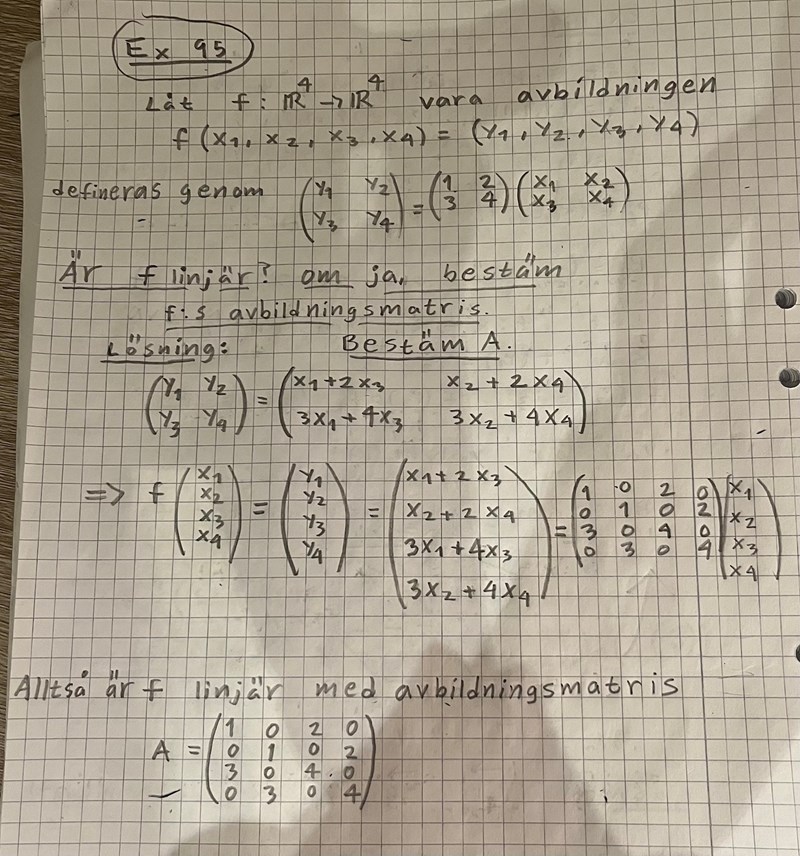 Ex 95
Låt f: ℝ⁴ → ℝ⁴ vara avbildningen
f(x₁, x₂, x₃, x₄) = (y₁, y₂, y₃, y₄)
defineras genom (y₁ y₂ ; y₃ y₄) = (1 2 ; 3 4) (x₁ x₂ ; x₃ x₄)
Är f linjär? om ja, bestäm
f:s avbildningsmatris.
Lösning: Bestäm A.
(y₁ y₂ ; y₃ y₄) = (x₁+2x₃ x₂+2x₄ ; 3x₁+4x₃ 3x₂+4x₄)
=> f (x₁ ; x₂ ; x₃ ; x₄) = (y₁ ; y₂ ; y₃ ; y₄) = (x₁+2x₃ ; x₂+2x₄ ; 3x₁+4x₃ ; 3x₂+4x₄) = (1 0 2 0 ; 0 1 0 2 ; 3 0 4 0 ; 0 3 0 4) (x₁ ; x₂ ; x₃ ; x₄)
Alltså är f linjär med avbildningsmatris
A = (1 0 2 0 ; 0 1 0 2 ; 3 0 4 0 ; 0 3 0 4)